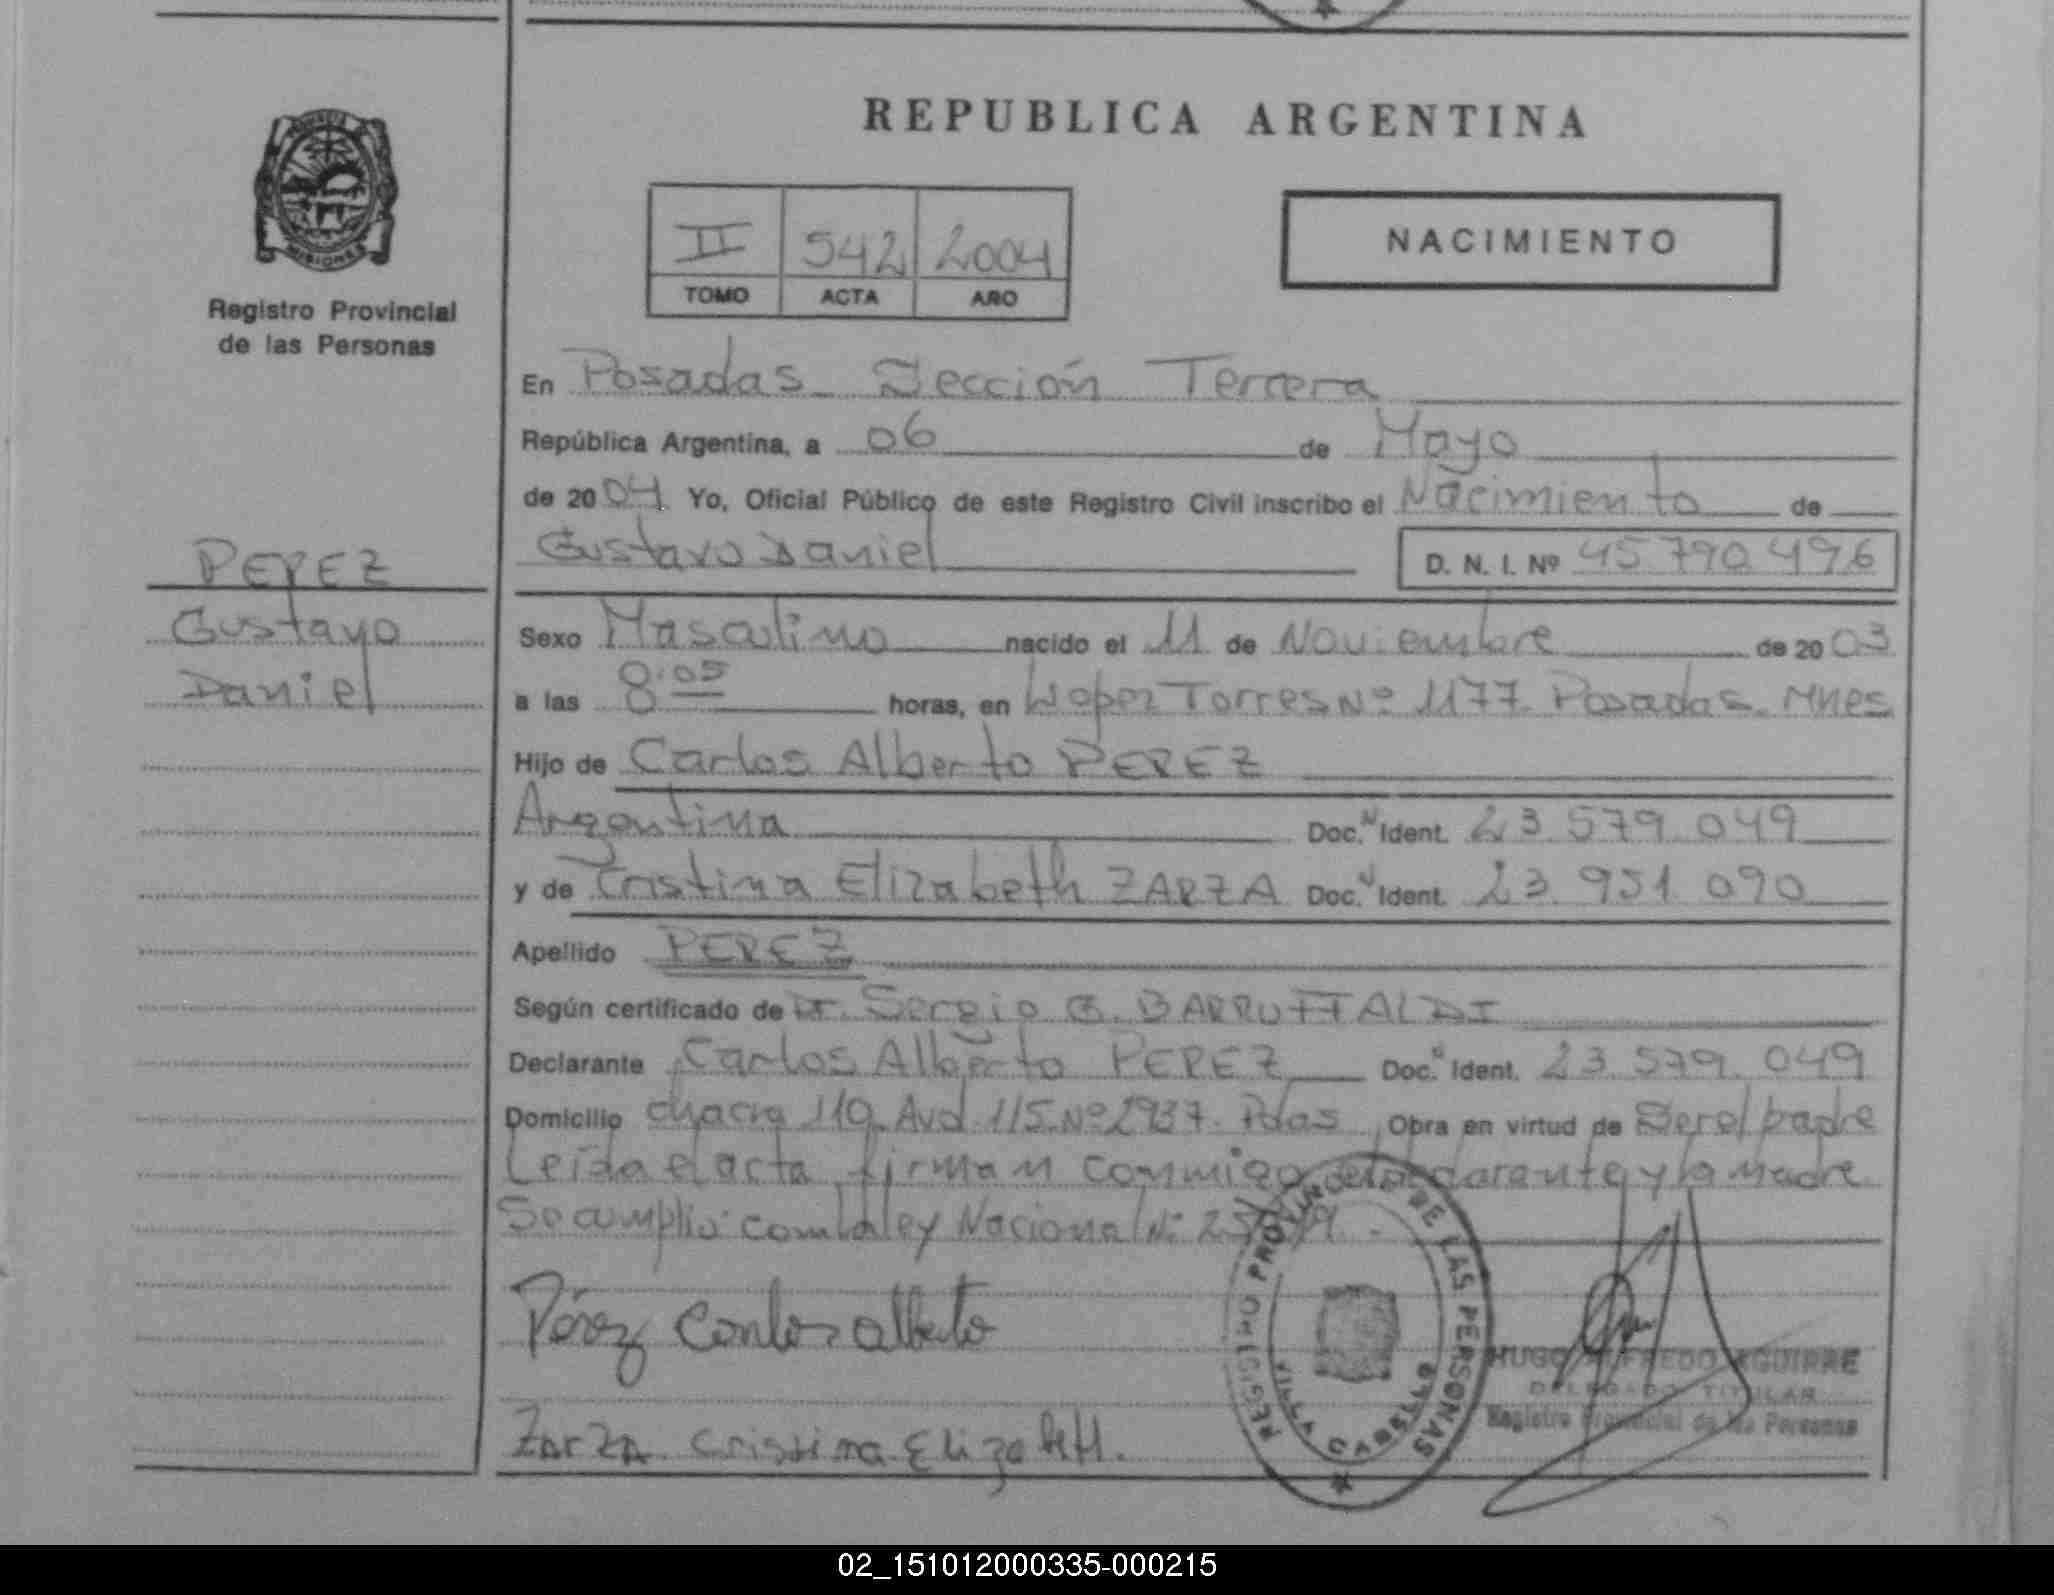 REPUBLICA ARGENTINA
PROVINCIA
MISIONES
Registro Provincial
de las Personas
II 542 2004
TOMO ACTA AÑO
NACIMIENTO
En Posadas - Sección Tercera
República Argentina, a 06 de Mayo
de 2004 Yo, Oficial Público de este Registro Civil inscribo el Nacimiento de
Gustavo Daniel D. N. I. Nº 45 790 496
PEREZ
Gustavo
Daniel
Sexo Masculino nacido el 11 de Noviembre de 2003
a las 8:05 horas, en López Torres Nº 1177. Posadas. Mnes
Hijo de Carlos Alberto PEREZ
Argentina Doc. N Ident. 23.579.049
y de Cristina Elizabeth ZARZA Doc. N Ident. 23.951.090
Apellido PEREZ
Según certificado de Dr. Sergio G. BARRUFFALDI
Declarante Carlos Alberto PEREZ Doc. Ident. 23.579.049
Domicilio chacra 110. Avd. 115. Nº 2937. Pdas Obra en virtud de Ser el padre
Leida el acta firman conmigo el declarante y la madre
Se cumplio con la ley Nacional Nº
Pérez Carlos alberto
Zarza Cristina Elizabeth.
REGISTRO PROVINCIAL DE LAS PERSONAS
VILLA CABELLO
HUGO ALFREDO AGUIRRE
DELEGADO TITULAR
Registro Provincial de las Personas
02_151012000335-000215